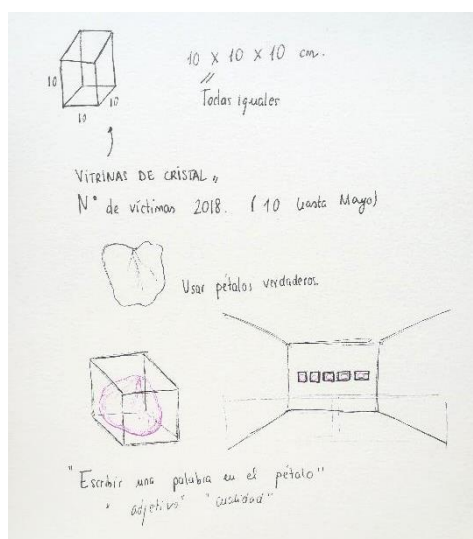 10 x 10 x 10 cm.
10
10
10
Todas iguales
VITRINAS DE CRISTAL
Nº de víctimas 2018. (10 hasta Mayo)
Usar pétalos verdaderos.
"Escribir una palabra en el pétalo"
"adjetivo" "cualidad"